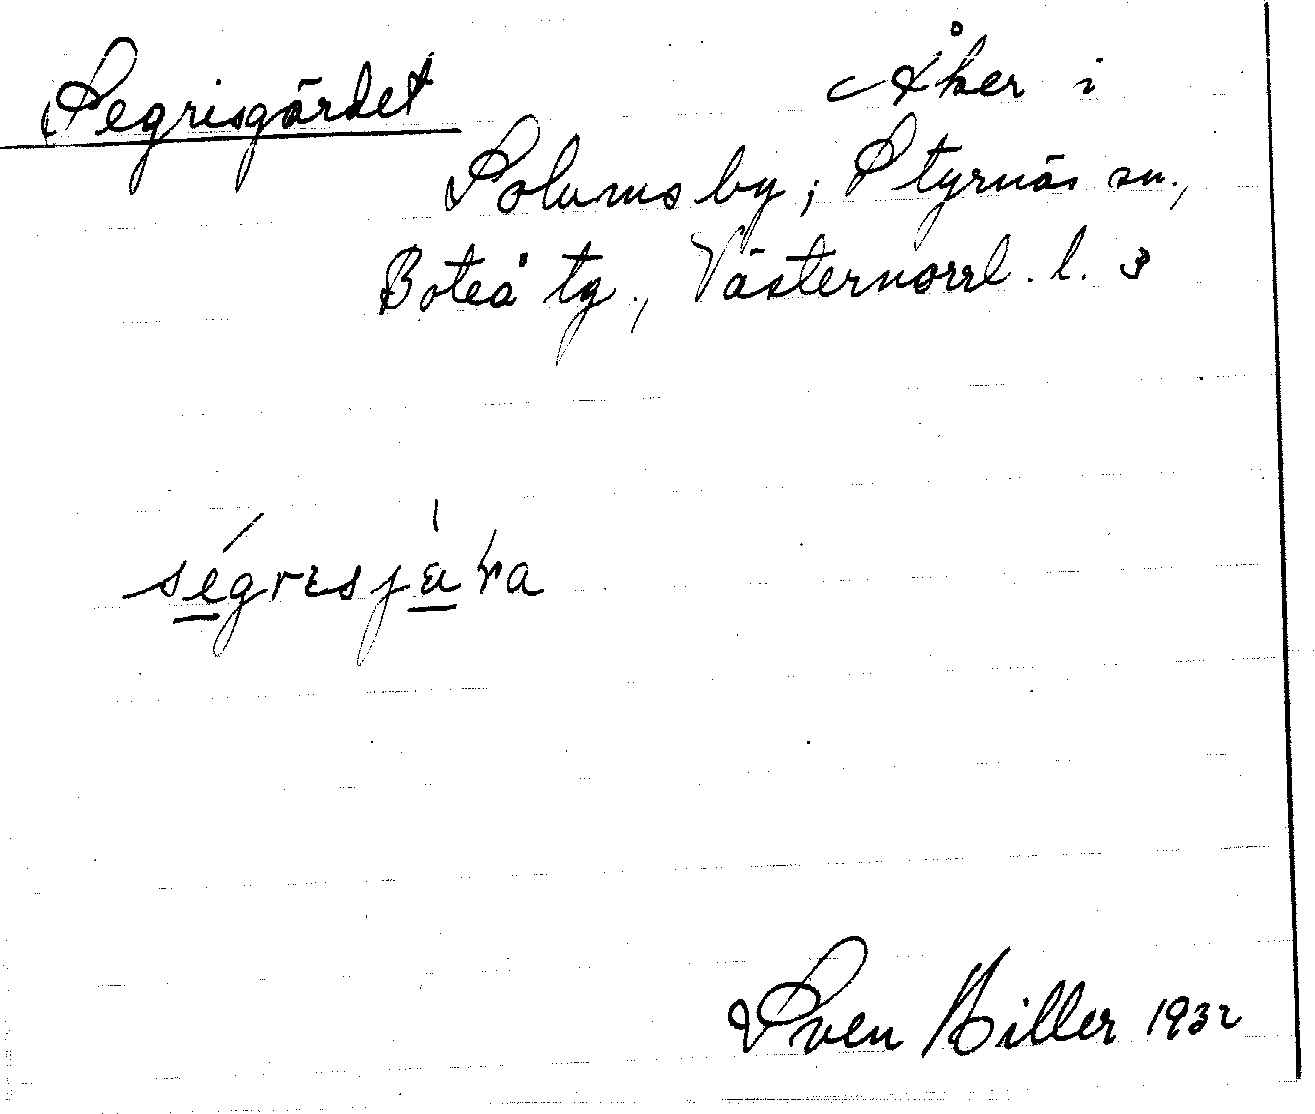 Segrisgärdet
Åker i
Solums by, Styrnäs sn.,
Boteå tg., Västernorrl. l. 3
Sven Hiller 1932